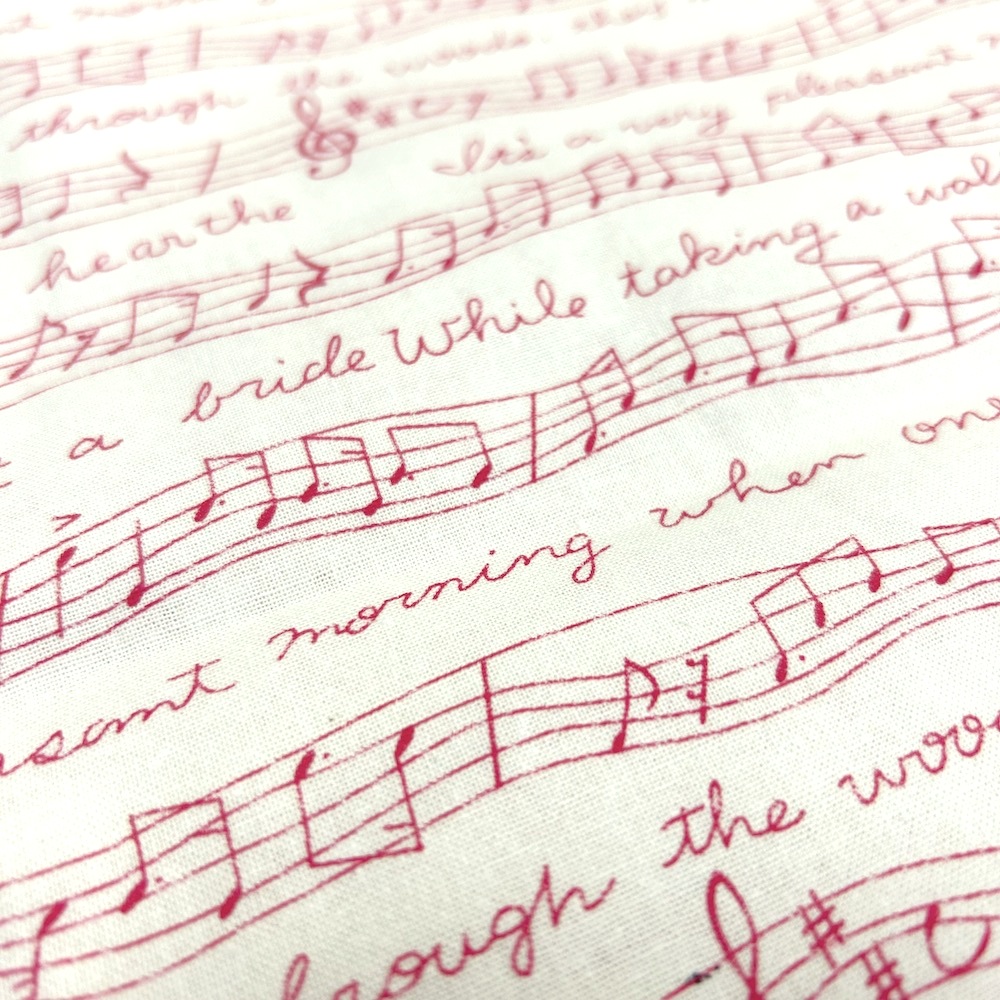 through the woods
hear the It's a very pleasant
a bride While taking a wal
sant morning when one
rough the woo